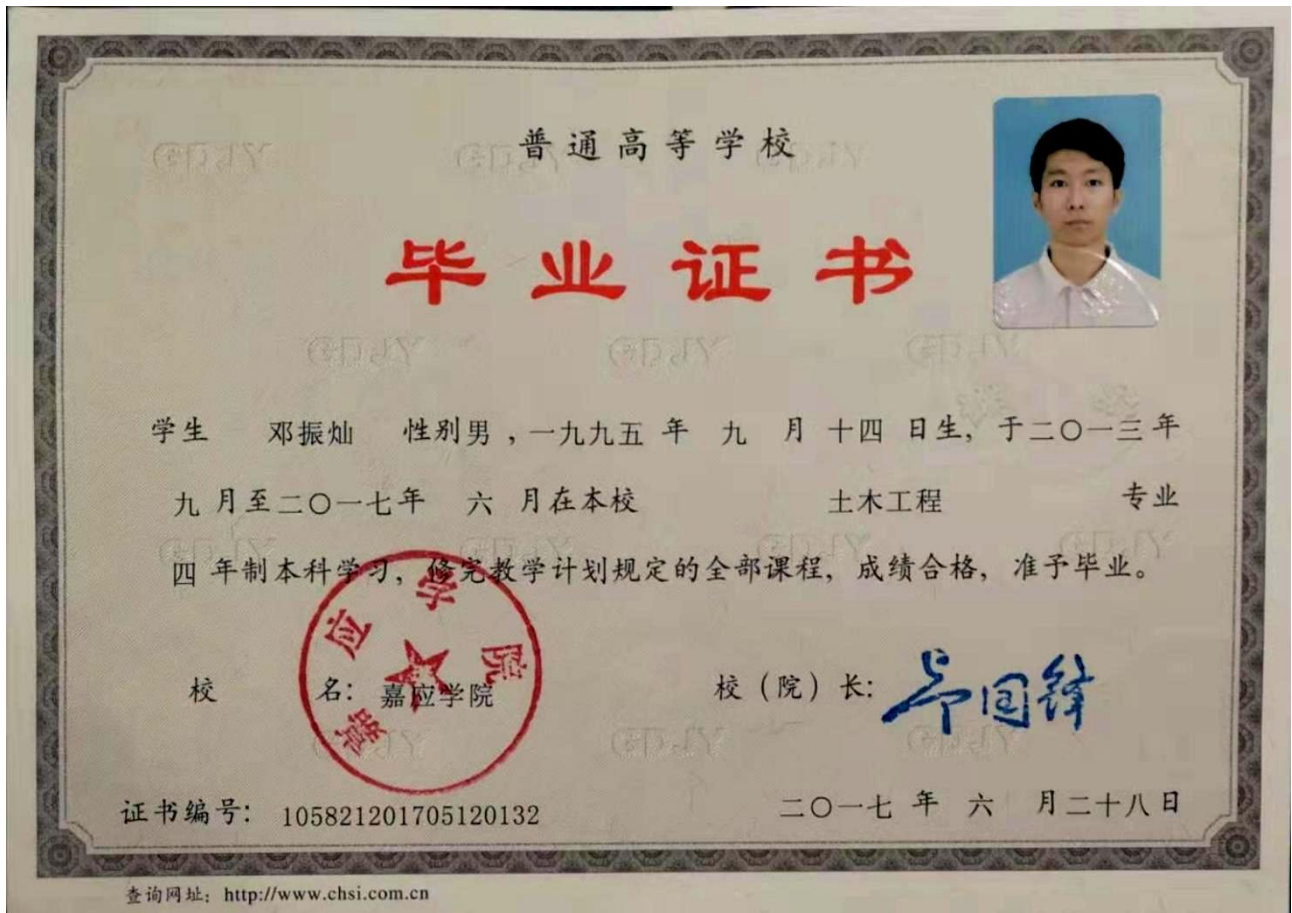 普通高等学校
毕业证书
学生 邓振灿 性别男，一九九五年 九 月 十四 日生，于二〇一三年
九 月至二〇一七年 六 月在本校 土木工程 专业
四 年制本科学习，修完教学计划规定的全部课程，成绩合格，准予毕业。
校 名：嘉应学院 校（院）长：
嘉应学院
证书编号：105821201705120132 二〇一七 年 六 月二十八日
查询网址：http://www.chsi.com.cn